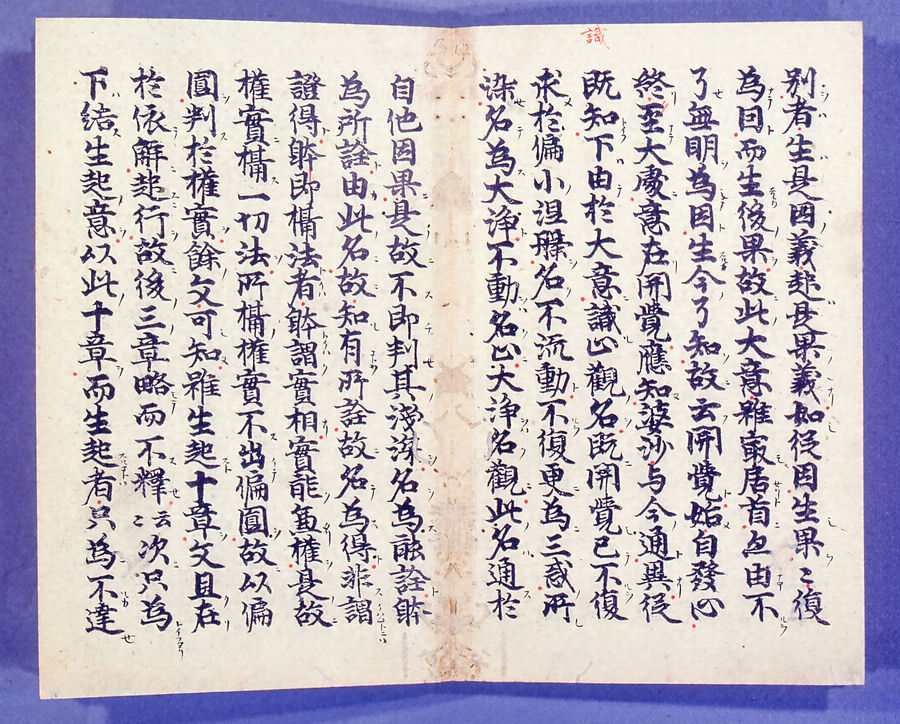 識
別者生是因義起是果義如從因生果〻復
為因而生後果故此大意雖最居首必由不
了無明為因生今了知故云開覺始自發心
終至大處意在開覺應知婆沙与今通異從
既知下由於大意識止觀名既開覺已不復
求於偏小涅槃名不流動不復更為三惑所
染名為大淨不動名止大淨名觀此名通於
自他因果是故不即判其淺深名為能詮體
為所詮由此名故知有所詮故名為得非謂
證得體即攝法者體謂實相實能兼權是故
權實攝一切法所攝權實不出偏圓故以偏
圓判於權實餘文可知雖生起十章文且在
於依解起行故後三章略而不釋〻云次只為
下結生起意以此十章而生起者只為不達